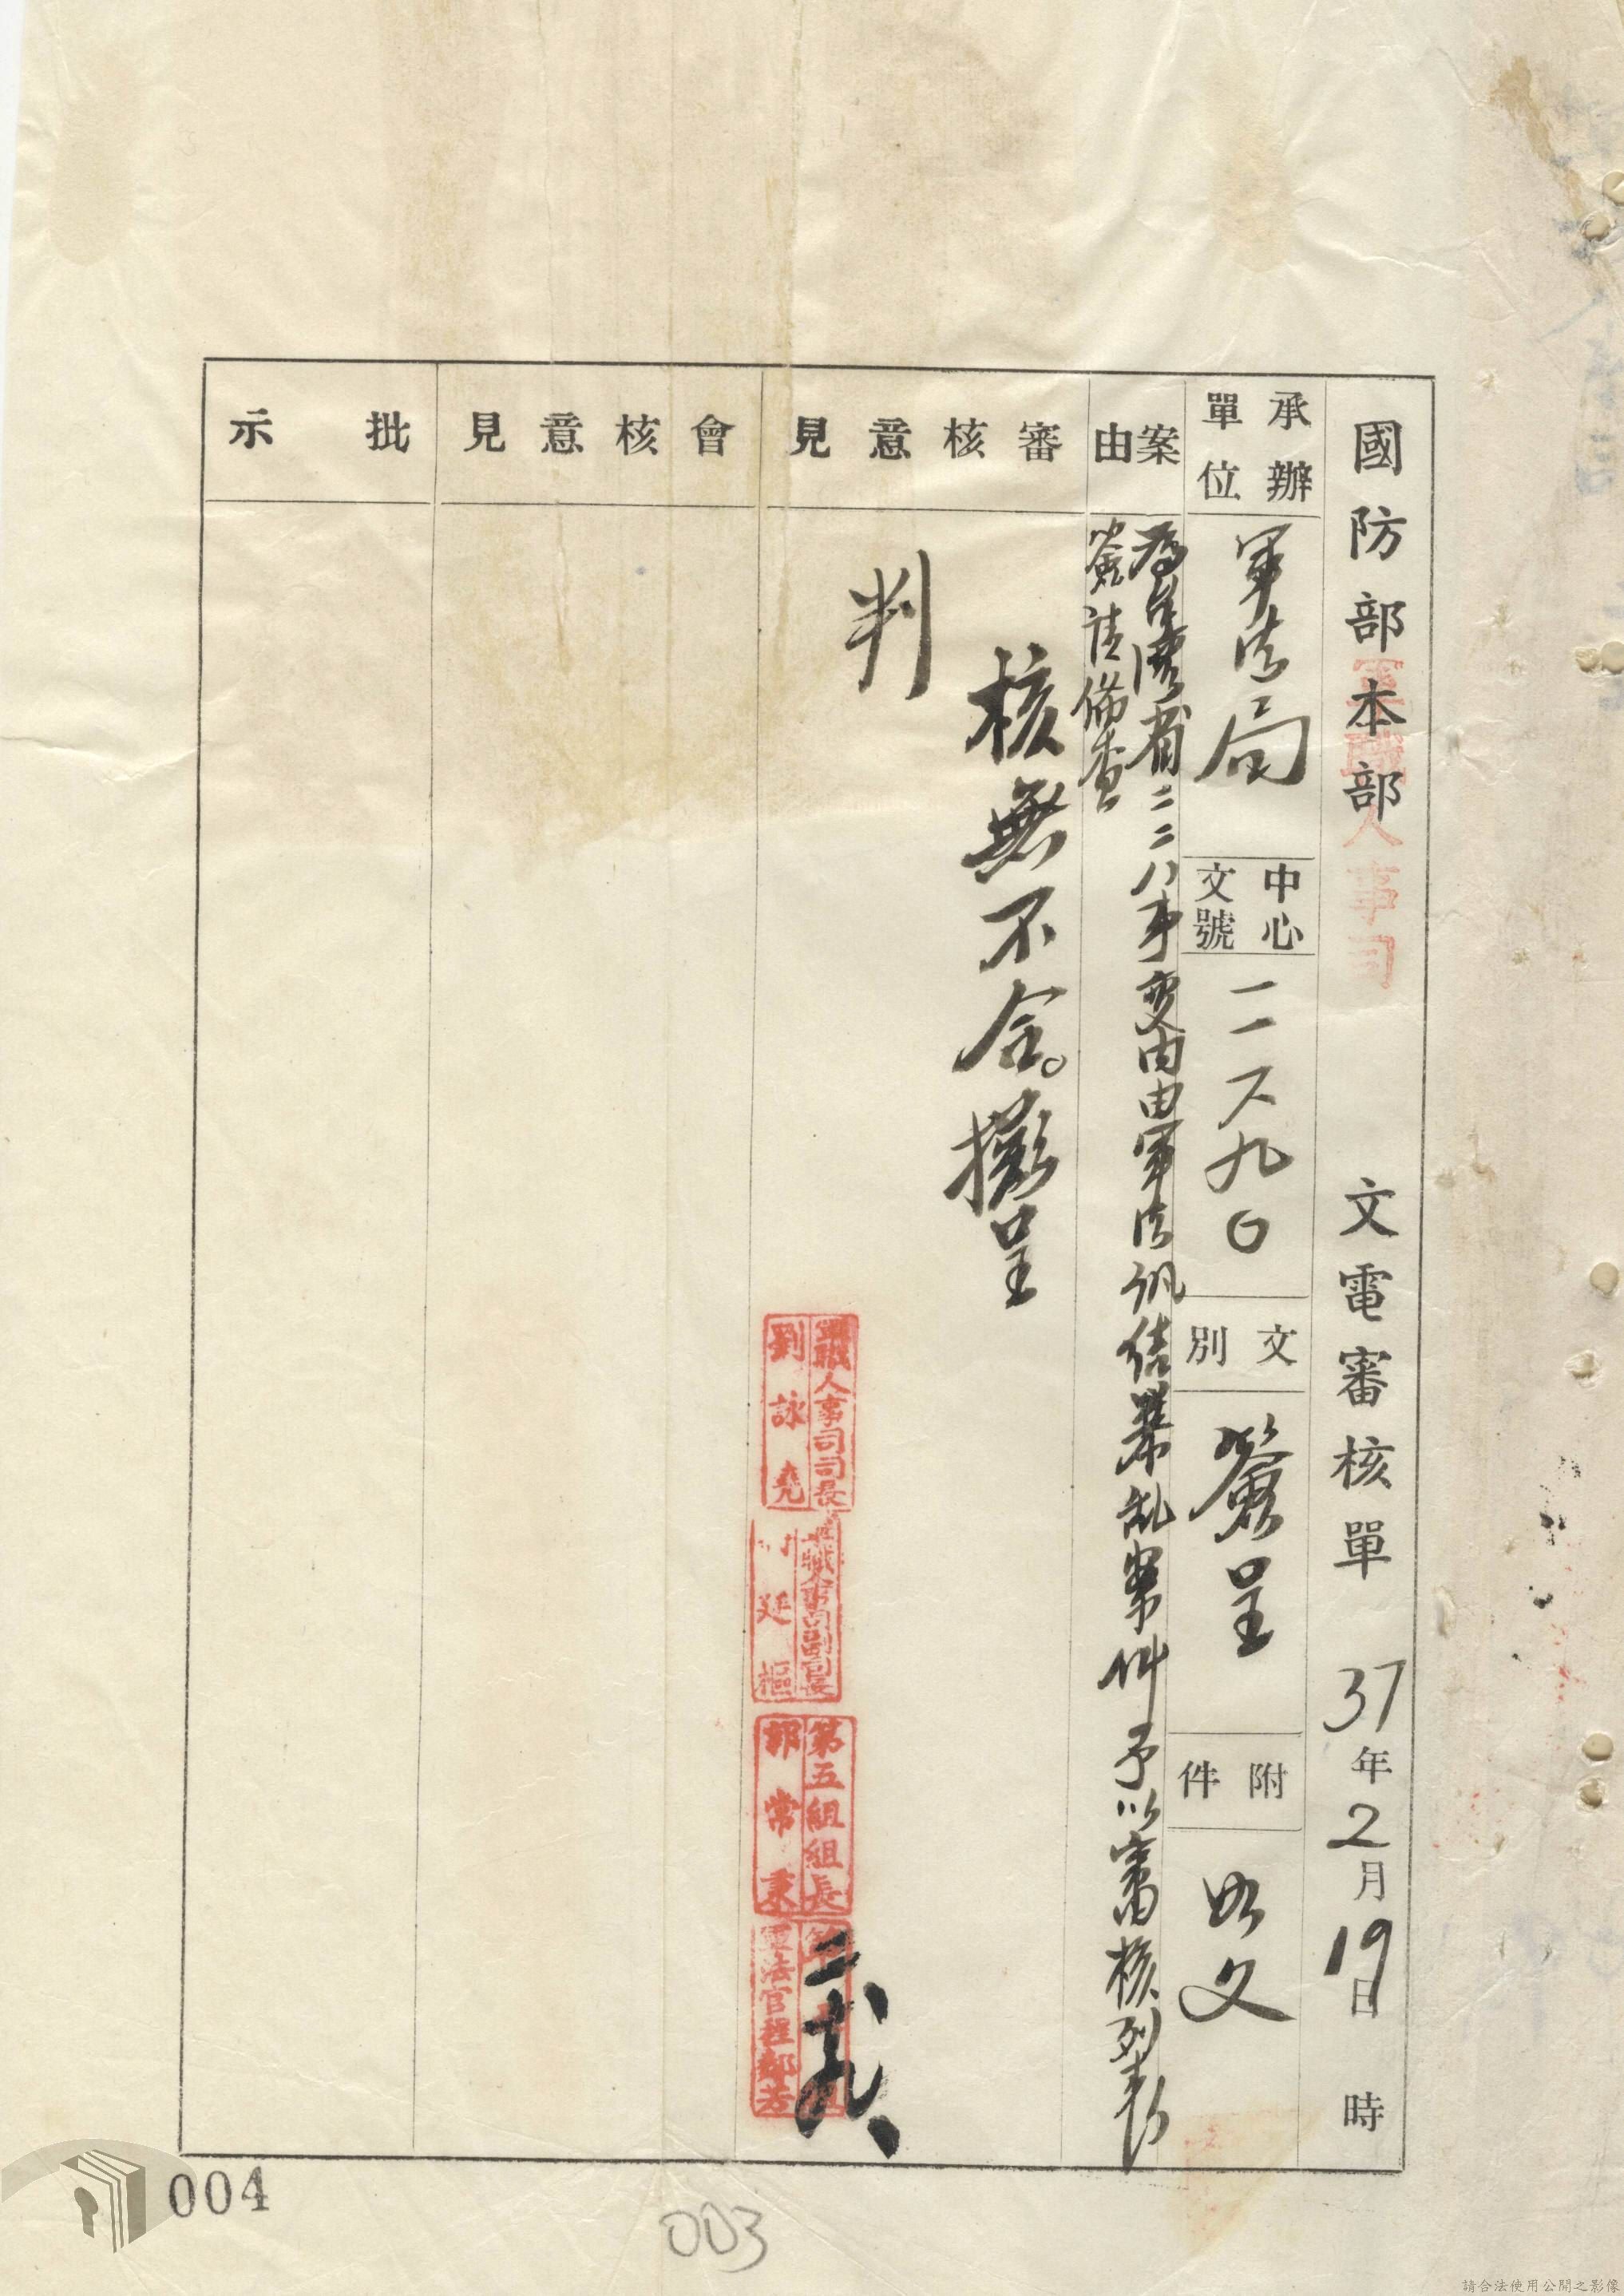 國防部本部 文電審核單 37年2月19日 時
軍職人事司
承辦單位
軍法局
中心文號
一一六九〇
文別
簽呈
附件
如文
案由
為台灣省二二八事變內由軍法訊結暴亂案件予以審核列表
簽請備查
審核意見
核無不合。擬呈
判
軍職人事司司長
劉詠堯
廷樞
第五組組長
郭常秉
軍法官程鄰芳
二、十九、
會核意見
批示
004
003
請合法使用公開之影像